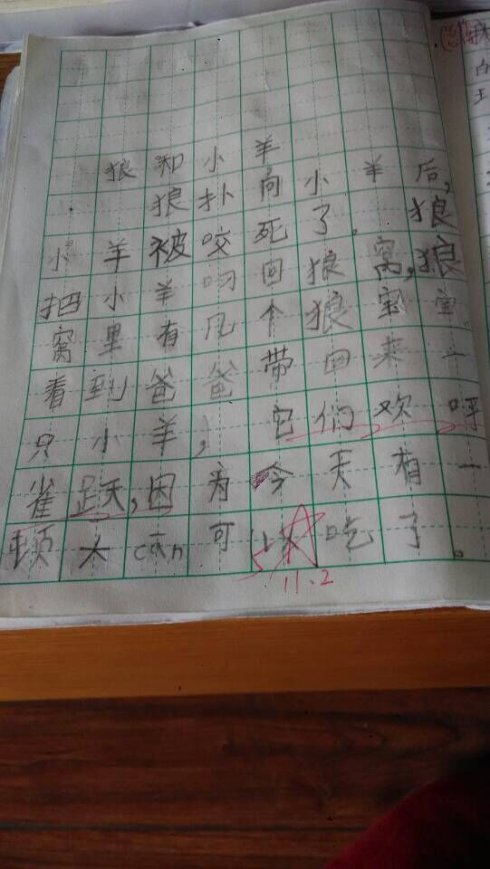 狼和小羊
狼扑向小羊后,
小羊被咬死了。狼
把小羊叼回狼窝,狼
窝里有几个狼宝宝
看到爸爸带回来一
只小羊,它们欢呼
雀跃,因为今天有一
顿大cān可以吃了。
11.2